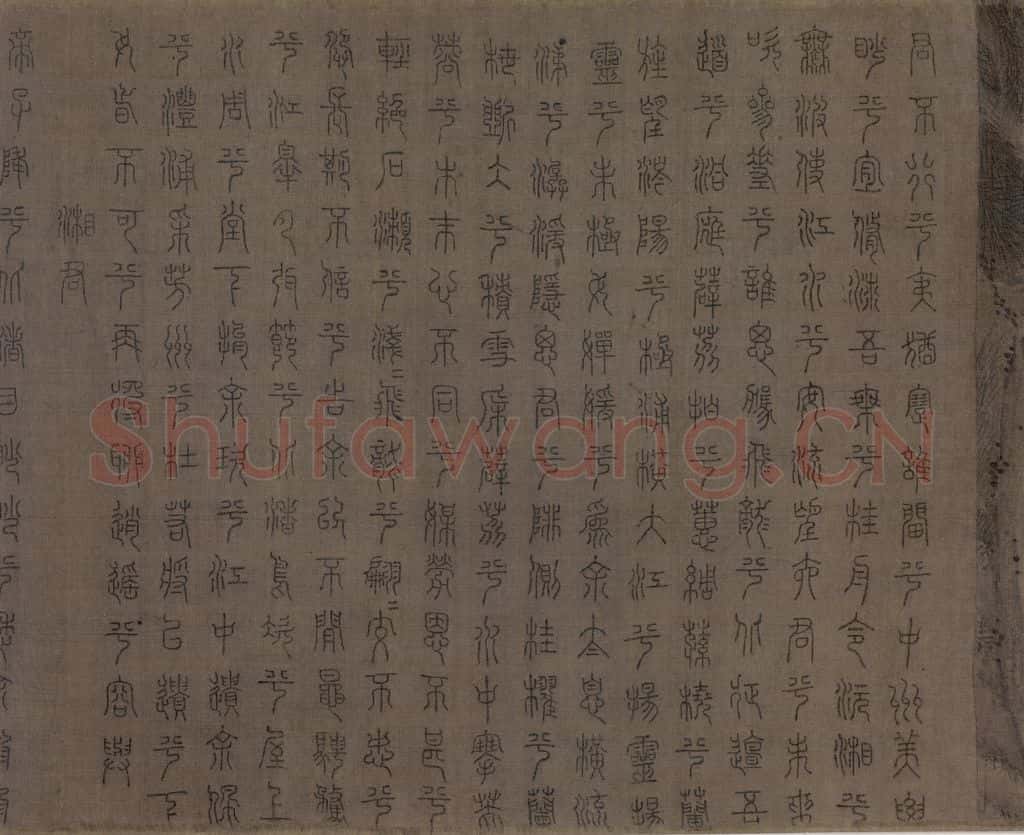 君不行兮夷猶蹇誰留兮中洲美要
眇兮宜脩沛吾乘兮桂舟令沅湘兮
無波使江水兮安流望夫君兮未來
吹參差兮誰思駕飛龍兮北征邅吾
道兮洞庭薜荔拍兮蕙綢蓀橈兮蘭
旌望涔陽兮極浦橫大江兮揚靈揚
靈兮未極女嬋媛兮爲余太息橫流
涕兮潺湲隱思君兮陫側桂櫂兮蘭
枻斲冰兮積雪采薜荔兮水中搴芙
蓉兮木末心不同兮媒勞恩不甚兮
輕絕石瀨兮淺〻飛龍兮翩〻交不忠兮
怨長期不信兮告余以不閒鼂騁騖
兮江皋夕弭節兮北渚鳥次兮屋上
水周兮堂下捐余玦兮江中遺余佩
兮澧浦采芳洲兮杜若將以遺兮下
女時不可兮再得聊逍遙兮容與
湘君
帝子降兮北渚目眇眇兮
Shufawang.CN